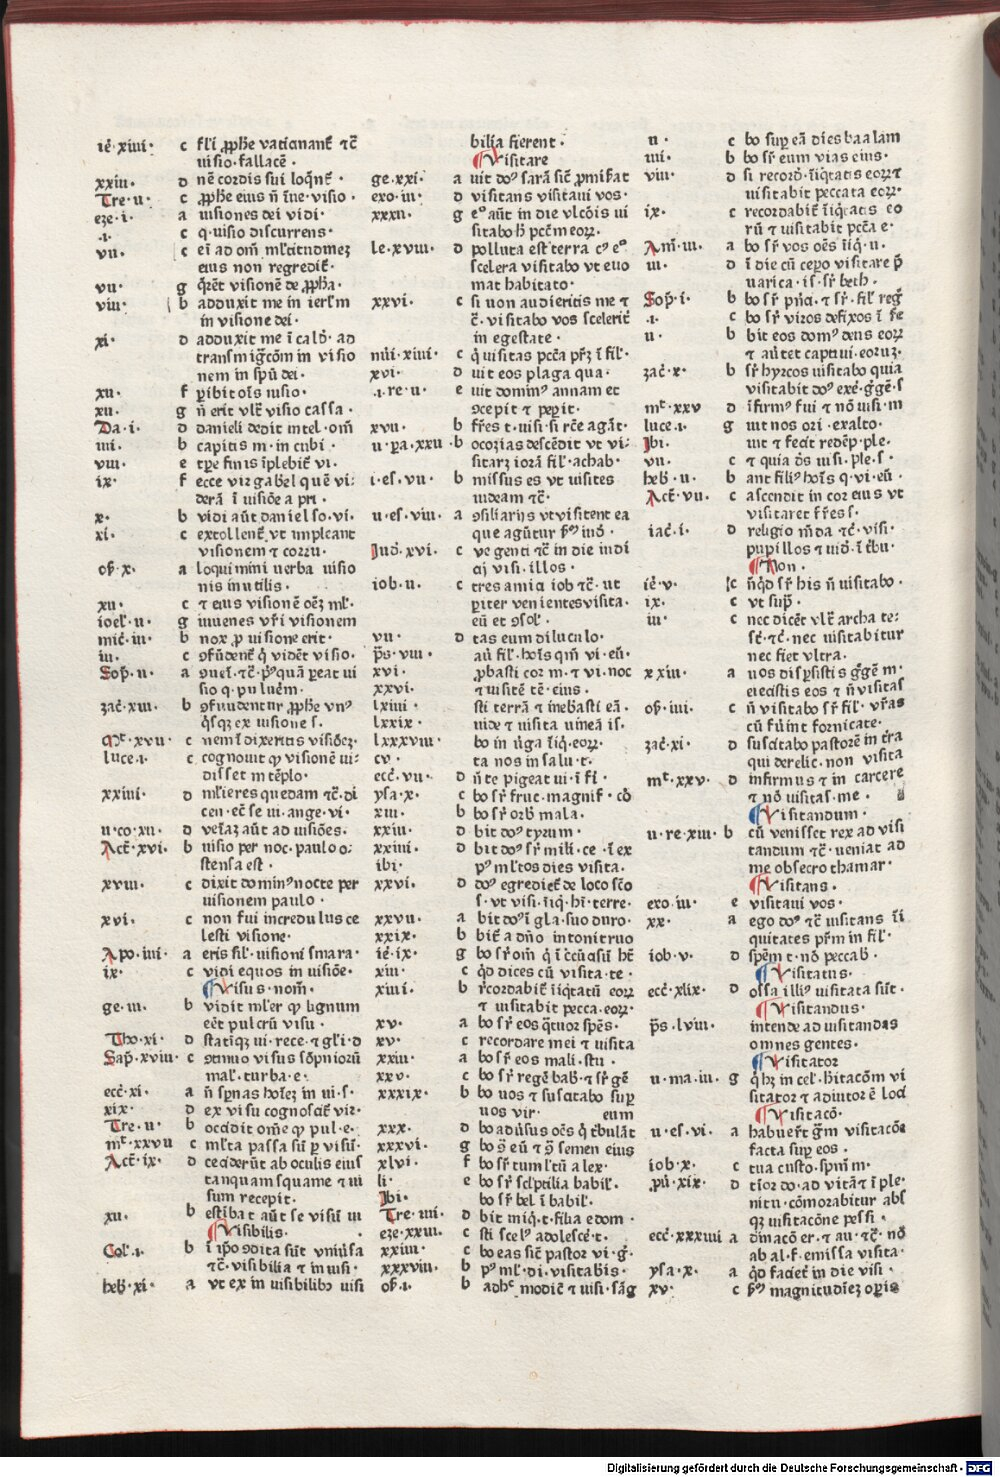 ie᷑·xiiii· c fl᷑i ꝓph᷑e vaticinant᷑ ⁊c̄
uisio·fallacē·
xxiii· d nē cordis sui loqn̄t᷑·
Tre·ii· c ꝓph᷑e eius n̄ īue·visio·
eze·i· a uisiones dei vidi·
·i· c q·uisio discurrens·
vii· c ei᷑ ad om̄ ml᷑titudinez
eius non regrediet᷑·
vii· g q̄rēt visionē de ꝓph᷑a·
viii· b adduxit me in ierl᷑m
in visione dei·
xi· d adduxit me ī cald᷑·ad
transmig᷑cōm in visio
nem in spū dei·
xii· f ꝑibit oīs uisio·
xii· g n̄ erit vlt᷑ visio cassa·
Da·i· d danieli dedit intel·om̄
iiii· b capitis m·in cubi·
viii· e tꝑe finis īplebit᷑ vi·
ix· f ecce vir gabel quē vi:
derā ī uisiōe a pri·
x· b vidi aūt daniel so·vi·
xi· c extollent᷑ vt impleant
visionem ⁊ corru·
os᷑·x· a loquimini uerba uisio
nis inutilis·
xii· c ⁊ eius visionē oēz ml᷑·
ioel᷑·ii· g iuuenes vr̄i visionem
mic᷑·iii· b nox ꝓ uisione erit·
iii· c ꝯfūdent᷑ q̇ vidēt visio·
Sop᷑·ii· a
sio q·puluēm·
zac᷑·xiii· b ꝯfundentur ꝓph᷑e vnꝰ
q̇sqz ex uisione s·
Mt᷑·xvii· c nemī dixeritis visiōez·
luce·i· c cognouit ꝙ visionē ui:
disset in tēplo·
xxiiii· d ml᷑ieres quedam ⁊c̄·di
cen·ec᷑ se ui·ange·vi·
ii·co·xii· d vēiaz aūt ad uisiōes·
Act᷑·xvi· b uisio per noc·paulo o:
stensa est·
xviii· c dixit dominꝰ nocte per
uisionem paulo·
xvi· c non fui incredulus ce
lesti visione·
Apo·iiii· a eris sil᷑·uisioni smara·
ix· c vidi equos in uisiōe·
¶Visus·nom̄·
ge·iii· b vidit ml᷑er ꝙ lignum
eēt pulcrū visu·
Tho·xi· d statīqz ui·rece·⁊ gl᷑i·d
Sap᷑·xviii· c ꝯtinuo visus sōpniorū
mal᷑·turba·e·
ecc᷑·xi· a n̄ sꝑnas hoīez in ui·s·
xix· d ex visu cognoscit᷑ vir·
Tre·ii· b occidit om̄e ꝙ pul·e·
mt᷑·xxvii c ml᷑ta passa sū ꝑ visū·
Act᷑·ix· d ceciderūt ab oculis eius
tanquam squame ⁊ ui
sum recepit·
xii· b estibat aūt se visū ui
¶Visibilis·
Col᷑·i· b ī ip̄o ꝯdita sūt vniūsa
⁊c̄·visibilia ⁊ inuisi·
heb᷑·xi· a vt ex inuisibilibꝰ uisi
bilia fierent·
¶Visitare
ge·xxi· a uit doꝰ sarā sic᷑ ꝓmis᷑at
exo·iii· d visitans visitaui vos·
xxxii· g eᵒ aūt in die vlc̄ōis ui
sitabo h᷑ pcc̄m eoꝝ·
le·xviii· d polluta est terra cꝰ eᵒ
scelera visitabo vt euo
mat habitato·
xxvi· c si non audieritis me ⁊
c̄·visitabo vos scelerit᷑
in egestate·
nūi·xiiii· c q̇ uisitas pcc̄a pr̄z ī fil᷑·
xvi· d uit eos plaga qua·
·i·re·ii· e uit dominꝰ annam et
ꝯcepit ⁊ peꝑit·
xvii· b fr̄es t·uisi·si rc̄e agāt·
ii·pa·xxii·b ocozias descēdit vt vi:
sitarz iorā fil᷑·achab·
i·es·vii· b missus es vt uisites
iudeam ⁊c̄·
ii·es·viii· a ꝯsiliarijs vt visitent ea
que agūtur sꝰ iud̄·
Jud᷑·xvi· c ve genti ⁊c̄ in die iudi
cij visi·illos·
iob·ii· c tres amici iob ⁊c̄·ut
ꝑiter venientes visita·
eū et ꝯsol᷑·
vii· d tas eum diluculo·
ps̄·viii· aū fil᷑·hoīs qm̄ vi·eū·
xvi· ꝓbasti cor m·⁊ vi·noc
xxvi· ⁊ uisitē tē·eius·
lxiiii· sti terrā ⁊ inebasti eā·
lxxix· uide ⁊ uisita uineā is·
lxxxviii· bo in ūga īiq̄·eoꝝ·
cv· ta nos in salu·t·
ecc᷑·vii· d n̄ te pigeat ui·īfi·
ysa·x· c bo sr̄ fruc·magnif᷑·cō
xiii· b bo sr̄ orb᷑ mala·
xxiii· d bit doꝰ tyrum·
xxiiii· d bit doꝰ sr̄ mili·ce·ī ex
ibi· pꝰ ml᷑tos dies visita·
xxvi· d doꝰ egrediet᷑ de loco sc̄o
s·vt visi·īiq̄·h̄i·terre·
xxvii· a bit doꝰ ī gla·suo duro·
xxix· b bit᷑ a dn̄o in tonitruo
ie᷑·ix· g bo sr̄ om̄ q̇ ī ccūasū hꝫ
xiii· c q̇d dices cū visita·te·
xiiii· b rc̄ordabit᷑ īiq̄tatū eoꝝ
⁊ uisitabit pecca·eoꝝ·
xv· a bo sr̄ eos q̄tuor spēs·
xv· c recordare mei ⁊ uisita
xxiii· a bo sr̄ eos mali·stu·
xxv· c bo sr̄ regē bab᷑·⁊ sr̄ gē
xxxix· b bo uos ⁊ suscitabo suꝑ
uos vir· eum
xxx· d bo adūsus oēs q̇ tbulāt
xxxvi· g bo ꝯ eū ⁊ ꝯ semen eius
xlvi· f bo sr̄ tumltū alex·
li· e bo sr̄ scl᷑ptilia babil᷑·
Jbi· bo sr̄ bel ī babil᷑·
Tre·iiii· d bit miq̄·t·filia edom·
eze·xxiii· c sti scelꝰ adolescē·t·
xxiiii· c bo eas sic᷑ pastor vi·g᷑·
xxxviii· b pꝰ ml᷑·di·visitabis·
os᷑·i· b adhᶜ modic᷑ ⁊ uisi·sāg
ii· c bo suꝑ eā dies baalam
iiii· b bo sr̄ eum vias eius·
viii· d si record᷑·īiq̄tatis eoꝝ ⁊
uisitabit peccata eoꝝ·
ix· c recordabit᷑ īiq̄tatis eo
rū ⁊ uisitabit pcc̄a e·
Am᷑·iii· a bo sr̄ vos oēs īiq̄·u·
iii· d ī die cū cepo visitare p̄
uarica·is·sr̄ beth·
Sop᷑·i· b bo sr̄ pn̄ci·⁊ sr̄·fil᷑ reg᷑
·i· c bo sr̄ viros defixos ī fe
ii· b bit eos domꝰ deus eoꝝ
⁊ autet captiui·eoruz·
zac᷑·x· b sr̄ hyrcos uisitabo quia
visitabit doꝰ exē·g᷑gē·s
mt᷑·xxv d īfirmꝰ fui ⁊ nō uisi·m
luce·i· g uit nos ori·exalto·
Jbi· uit ⁊ fecit redēp·ple·
vii· c ⁊ quia ds̄ uisi·ple·s·
heb᷑·ii· b aut filiꝰ hoīs q·vi·eū·
Act᷑·vii· c ascendit in cor eius vt
visitaret fr̄es s·
iac᷑·i· d religio mūda ⁊c̄·visi·
pupillos ⁊ uid᷑·ī tbu·
¶Non·
ie᷑·v· c nūqd̄ sr̄ his n̄ uisitabo·
ix· c vt sup᷑·
iii· c nec dicēt vlt᷑ archa te:
st᷑·⁊c̄·nec uisitabitur
nec fiet vltra·
xxiii· a uos disꝑsistis g᷑gē m·
eiecistis eos ⁊ n̄ visitas
os᷑·iiii· c n̄ visitabo sr̄ fil᷑·vr̄as
cū fūint fornicate·
zac᷑·xi· d suscitabo pastorē in tr̄a
qui derelic·non visita
mt᷑·xxv· d infirmus ⁊ in carcere
⁊ nō uisitas·me·
¶Visitandum·
ii·re·xiii· b cū venisset rex ad visi
tandum ⁊c̄·ueniat ad
me obsecro thamar·
¶Visitans·
exo·iii· e visitaui vos·
xx· a ego doꝰ ⁊c̄ uisitans īi
quitates pr̄m in fil᷑·
iob·v· d spēm t·nō peccab᷑·
¶Visitatus·
ecc᷑·xlix· d ossa illiꝰ uisitata sūt·
¶Visitandus·
ps̄·lviii· intende ad uisitandas
omnes gentes·
¶Visitator
ii·ma·iii· g q᷑ hꝫ in cel᷑·hītacōm vi
sitator ⁊ adiutor ē loci
¶Visitacō·
ii·es·vi· a habuer̄t g᷑m visitacōe
facta suꝑ eos·
iob·x· c tua custo·spm̄ m·
ꝓū·xix· d tīor do·ad vitā ⁊ ī ple·
nitu·cōmorabitur absqz
uisitacōne pessi·
ecc᷑·xxxiiii a
ab al·f·emissa visita·
ysa·x· a q̇d faciet᷑ in die visi·
xv· c sꝰ magnitudīez oꝑis
Digitalisierung gefördert durch die Deutsche Forschungsgemeinschaft - DFG